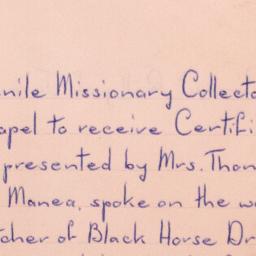 nile Missionary Collecto
apel to receive Certifi
presented by Mrs. Thom
Manea, spoke on the w
tcher of Black Horse Dr